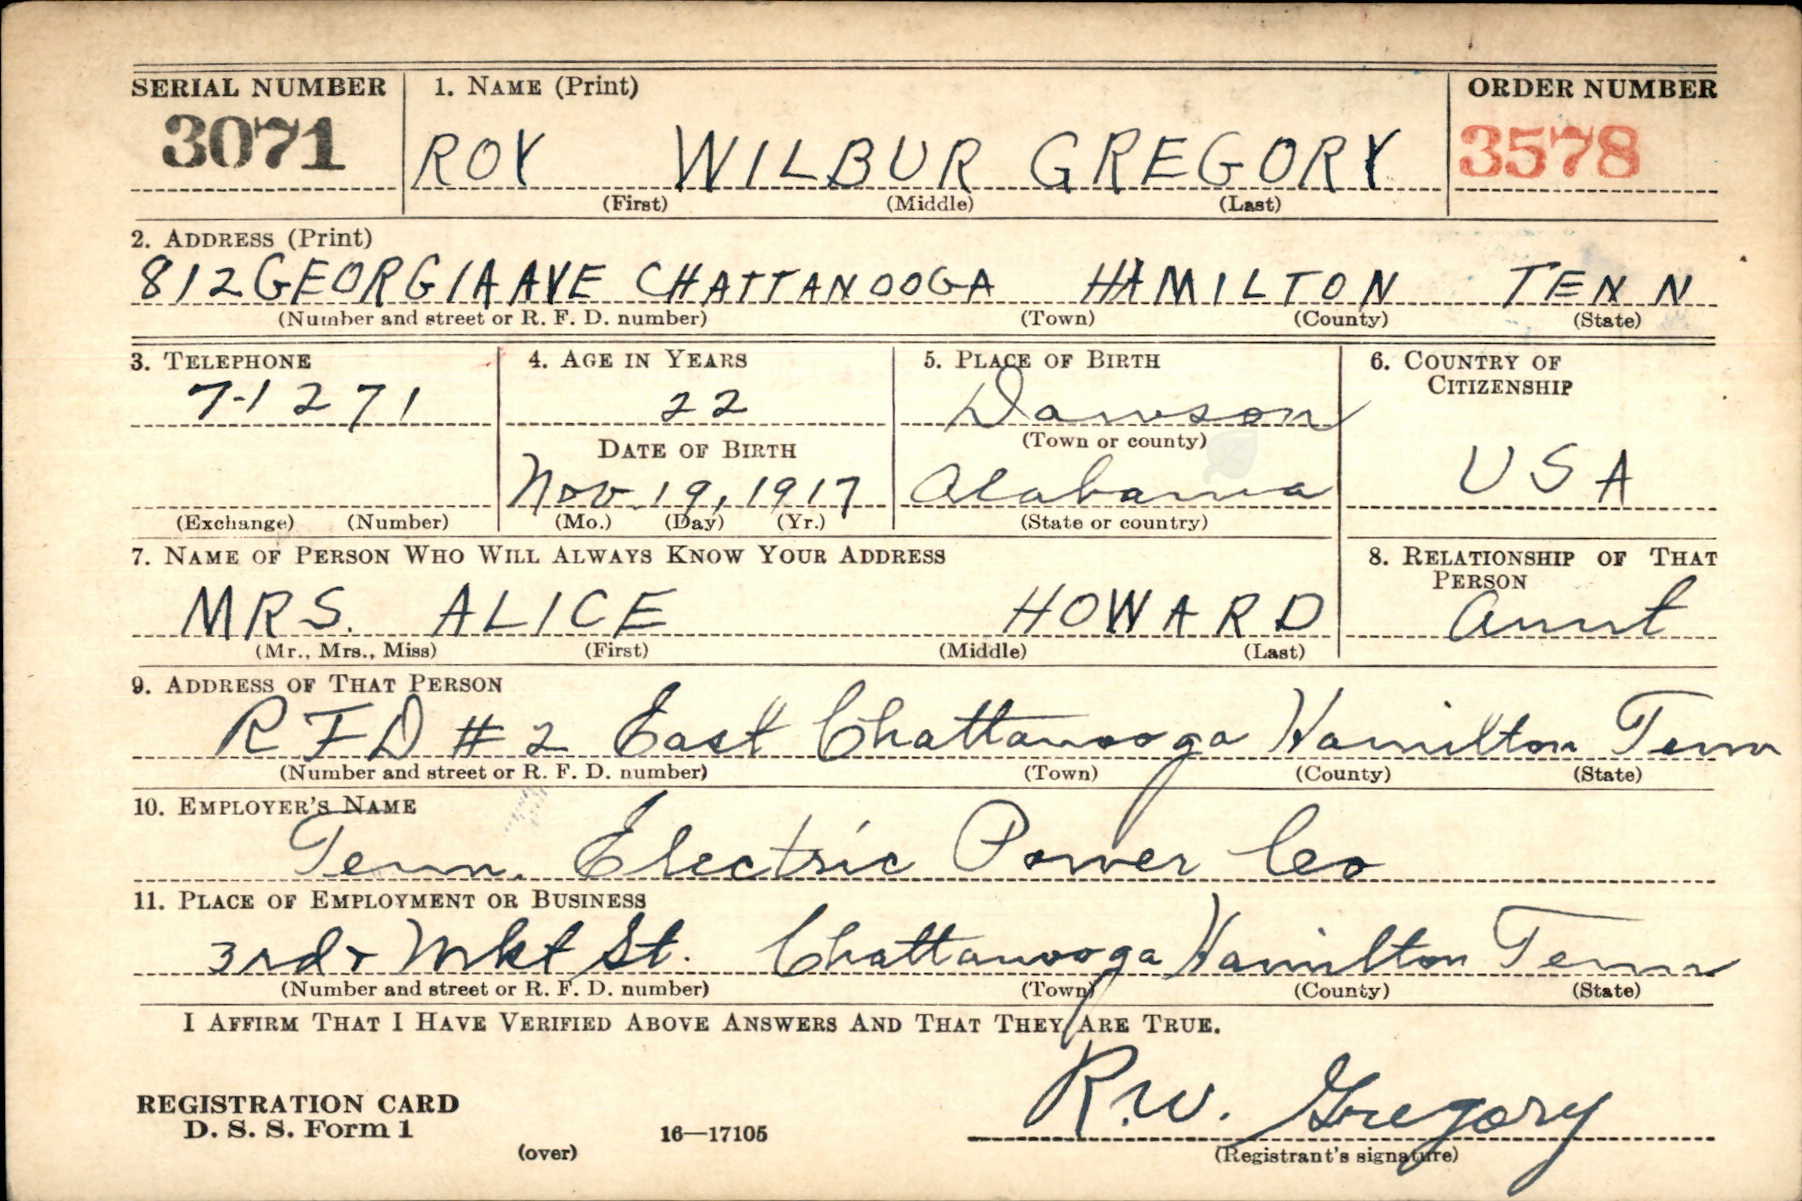 SERIAL NUMBER 1. NAME (Print) ORDER NUMBER
3071 ROY WILBUR GREGORY 3578
(First) (Middle) (Last)
2. ADDRESS (Print)
812 GEORGIA AVE CHATTANOOGA HAMILTON TENN
(Number and street or R. F. D. number) (Town) (County) (State)
3. TELEPHONE 4. AGE IN YEARS 5. PLACE OF BIRTH 6. COUNTRY OF CITIZENSHIP
7-1271 22 Dawson
DATE OF BIRTH (Town or county)
Nov. 19, 1917 Alabama USA
(Exchange) (Number) (Mo.) (Day) (Yr.) (State or country)
7. NAME OF PERSON WHO WILL ALWAYS KNOW YOUR ADDRESS 8. RELATIONSHIP OF THAT PERSON
MRS. ALICE HOWARD Aunt
(Mr., Mrs., Miss) (First) (Middle) (Last)
9. ADDRESS OF THAT PERSON
RFD #2 East Chattanooga Hamilton Tenn
(Number and street or R. F. D. number) (Town) (County) (State)
10. EMPLOYER'S NAME
Tenn. Electric Power Co
11. PLACE OF EMPLOYMENT OR BUSINESS
3rd & Mkt St. Chattanooga Hamilton Tenn
(Number and street or R. F. D. number) (Town) (County) (State)
I AFFIRM THAT I HAVE VERIFIED ABOVE ANSWERS AND THAT THEY ARE TRUE.
REGISTRATION CARD
D. S. S. Form 1 (over) 16—17105 R.W. Gregory
(Registrant's signature)